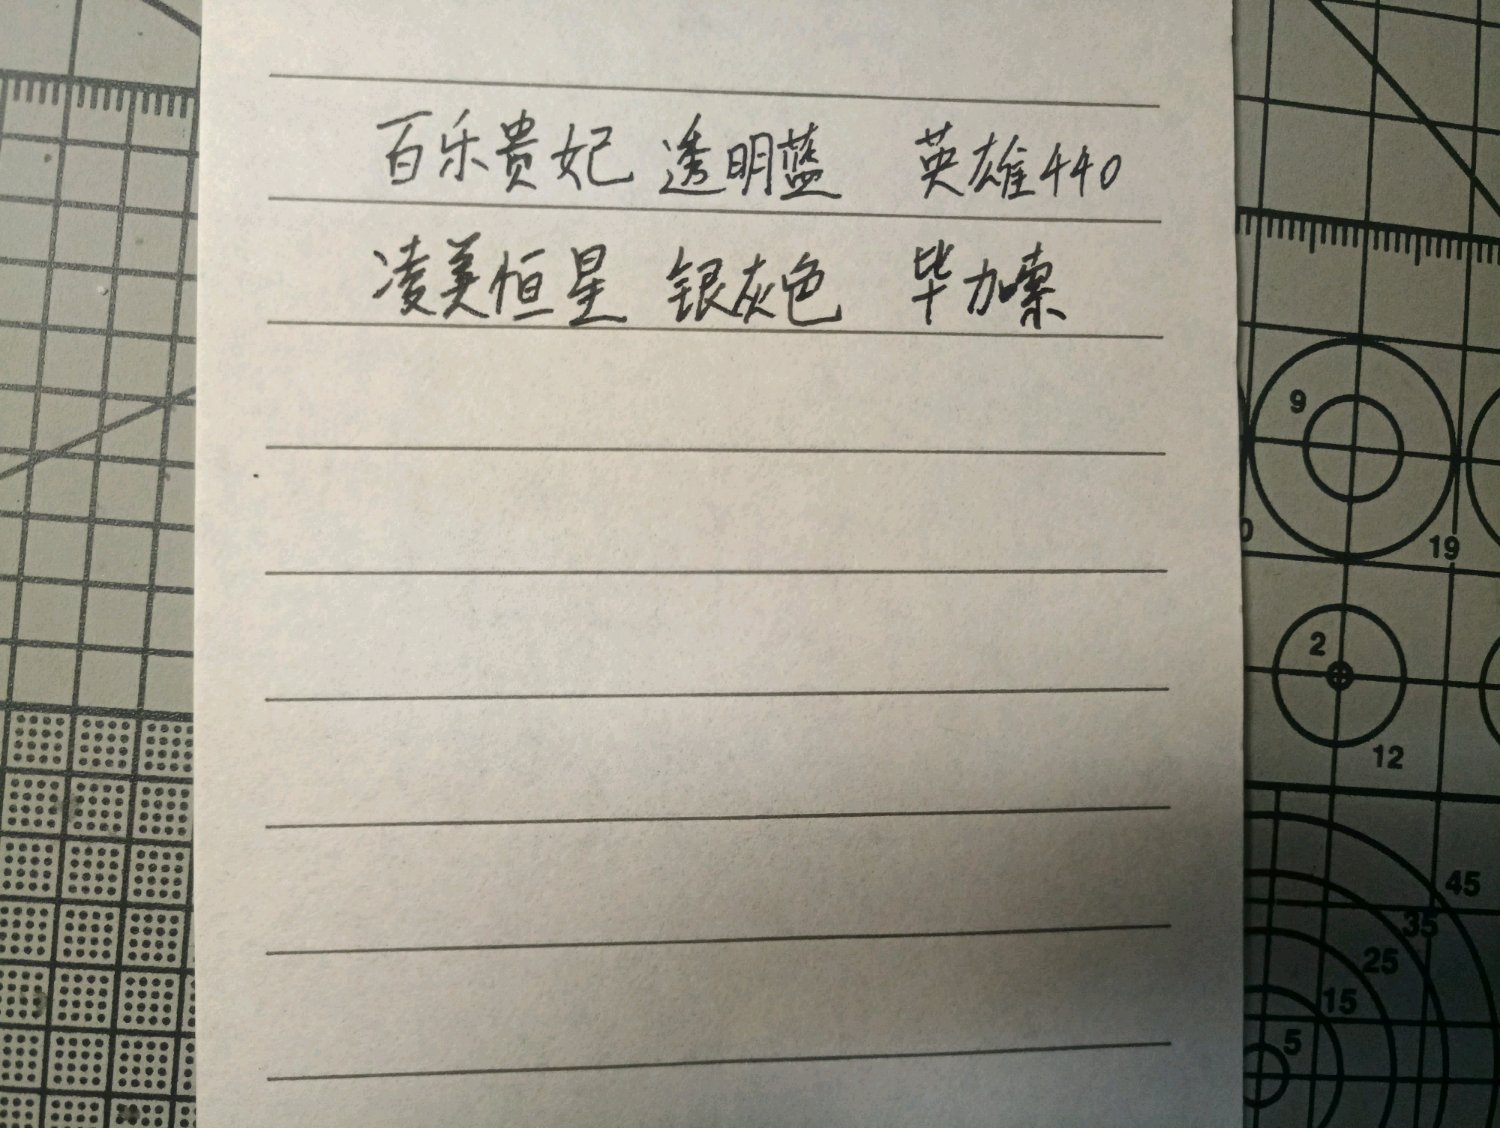 百乐贵妃 透明蓝 英雄440
凌美恒星 银灰色 毕加索
9
19
0
2
12
45
35
25
15
5